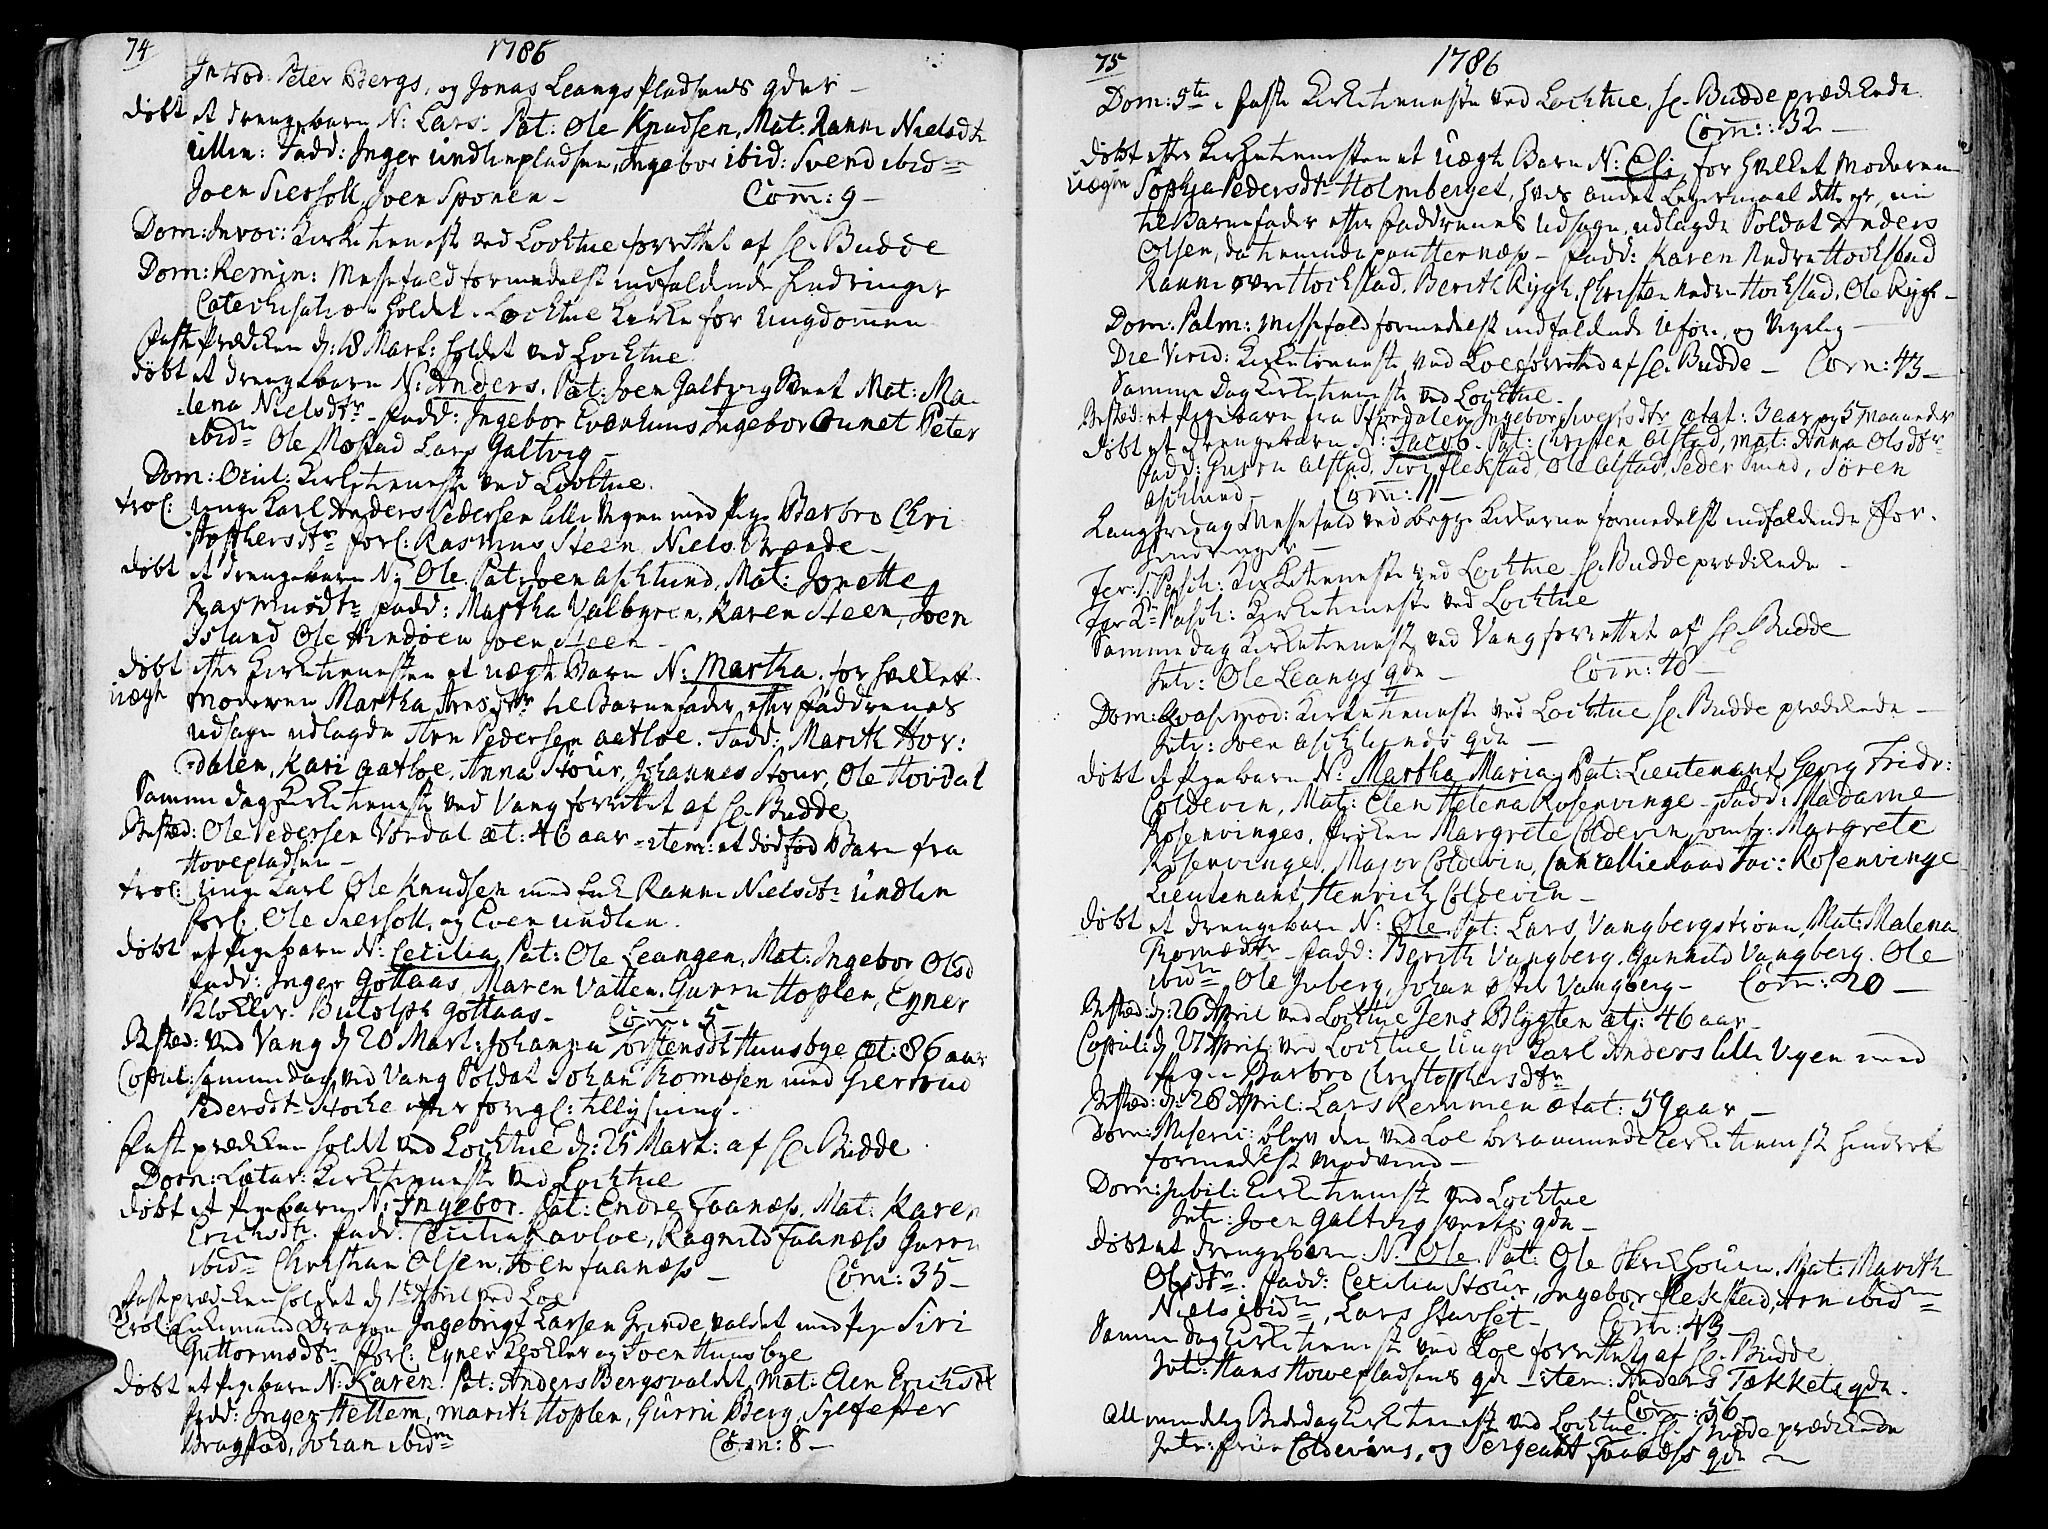 74 1786
Introd: Peter Bergs, og Jonas Leangs Pladsens qder –
døbt et drengebarn N: Lars. Pat: Ole Knudsen, Mat: Ranni Nielsdtr
Fadd: Inger ündlinpladsen, Ingebor ibid: Svend ibidm
Joen Siersoll, Joen Sponen – Com: 9 –
Dom: Invoc: Kirketieneste ved Lochtue forrettet af Hr Budde
Dom: Remin: Messefald formedelst indfaldende hindringer
Catechisation holdet i Lochtue Kirke for Ungdommen
Faste Prædiken d: 18 Mart: holdet ved Lochtue
døbt et drengebarn N: Anders. Pat: Joen Galtvig Mat: Ma-
lena Nielsdtr – Fadd: Ingebor Evenhuus Ingebor Peter
ibidm Ole Mostad Lars Galtvig –
Dom: Ocul: Kirketieneste ved Lochtue.
trol: Unge Karl Anders Pedersen lille Vegen med Pige Barbro Chri
stophersdtr forl: Rasmus Steen Niels Brænde –
døbt et drengebarn N: Ole. Pat: Joen Aschlund, Mat: Jonette
Rasmusdtr Fadd: Martha Valbyren, Karen Steen, Joen
Island Ole Hindøen Joen Steen –
døbt efter Kirketienesten et uægte Barn N: Martha. for hvilket
uægte Moderen Martha Arnsdtr til Barnefader efter Faddrenes
udsagn udlagde Arn Pedersen aatloe. Fadd: Marith Hov:
dalen, Kari aatloe, Anna Stour, Johannes Stour, Ole Hovdal
Samme dag Kirketieneste ved Vang forrettet af Hr Budde
Bested: Ole Pedersen Vordal æt: 46 aar – item: et dødfød Barn fra
Hovepladsen –
trol: Unge Karl Ole Knudsen med Enk Ranni Nielsdtr ündlin
forl: Ole Siersoll, og Even undlin.
døbt et Pigebarn N: Cecilia. Pat: Ole Leangen, Mat: Ingebor Olsd
Fadd: Inger Gottaas, Maren Vatten, Gurru Hoplen, Eyner
Klokker. Butolph Gottaas – Com: 5 –
Bested: ved Vang d: 20 Mart: Johanna Torstensdtr Huusbye æt: 86 aar
Copul: samme dag ved Vang Soldat Johan Thomæsen med Giertrud
Pedersdtr Stocke efter foregl: tillysning.
Faste prædiken holdt ved Lochtue d: 25 Mart: af Hr Budde
Dom: Lætar: Kirketieneste ved Lochtue
døbt et Pigebarn N: Ingebor. Pat: Endre Faanæss, Mat: Karen
Erichsdtr. Fadd: Cecilia Ravloe, Ragnild Faanæss Gurru
ibidm Christian Olsen, Joen Faanæss – Com: 35 –
Faste prædiken holdet d 1te April ved Loe
Trol: Enkemand Dragon Ingebrigt Larsen Grindevaldet med Pige Siri
Guttormsdtr forl: Eyner Klokker og Joen Huusbye
døbt et Pigebarn N: Karen. Pat: Anders Bergsvaldet, Mat: Elen Erichsdtr
Fadd: Inger Hellem, Marith Hoplen, Gürru Berg, Sylfester
Bragstad, Johan ibidm Com: 8 –
75 1786
Dom: 5te i Faste Kirketieneste ved Lochtue, Hr Budde prædikede
Com: 32 –
døbt efter Kirketienesten et Uægte Barn N: Eli, for hvilket Moderen
uægte Sophia Pedersdtr Holmberget, hvis andet Leyermaal dette er,
til Barnefader efter Faddrenes udsagn, udlagde Soldat Anders
Olsen, da tienende paa Hernæs – Fadd: Karen Nedre Hochstad
Ranni øvre Hochstad, Berith Rygh, Christen Nedre Hochstad, Ole Rygh –
Dom: Palm: Messefald formedelst indfaldende Uføre, og Veyrlig –
Die Virid: Kirketieneste ved Loe forrettet af Hr Budde – Com: 43 –
Samme Dag Kirketieneste ved Lochtue.
Bested: et Pigebarn fra Størdalen Ingebor Siversdtr ætat: 3 aar og 5 Maaneder
døbt et drengebarn N: Jacob. Pat: Christen Alstad, Mat: Anna Olsdtr
Fadd: Gurru Alstad, Siri Flekstad, Ole Alstad, Peder Sund, Søren
Aschlund – Com: 11 –
Langfredag Messefald ved begge Kirkerne formedelst indfaldende For-
hindringer –
Fer: 1 Pasch: Kirketieneste ved Lochtue Hr Budde prædikede –
Fer 2de Pasch: Kirketieneste ved Lochtue
Samme dag Kirketieneste ved Vang forrettet af Hr Budde
Intr: Ole Leangs qde – Com: 40 –
Dom: Qvasimod: Kirketieneste ved Lochtue Hr Budde prædikede –
Intr: Joen Aschlunds qde –
døbt et Pigebarn N: Martha Maria, Pat: Lieutenant Georg Fridr:
Coldevin, Mat: Elen Helena Rosenvinge – Fadd: Madame
Rosenvinges, Frøken Margrete Coldevin, Jomfr: Margrete
Rosenvinge, Major Coldevin, Cancellieraad Foc: Rosenvinge
Lieutenant Henrich Coldevin –
døbt et drengebarn N: Ole. Pat: Lars Vangbergstrøen, Mat: Malena
Thomædtr – Fadd: Berith Vangberg. Gunnild Vangberg. Ole
ibidm Ole Juberg, Johan øster Vangberg – Com: 20 –
Bested: d: 26 April ved Lochtue Jens Blygten æt: 46 aar –
Copul: d 27 April: ved Lochtue Unge Karl Anders lille Vegen med
Pige Barbro Christophersdtr
Bested: d: 28 April: Lars Remmen ætat: 59 aar –
Dom: Miseric: blev den ved Loe berammede Kirketieneste hindret
formedelst Modvind –
Dom: Jubil: Kirketieneste ved Lochtue
Intr: Joen Galtvig qde –
Døbt et drengebarn N: Ole. Pat: Ole Mat: Marith
Olsdtr: Fadd: Cecilia Stour, Ingebor Flekstad, Arn ibidm
Niels ibidm, Lars Stavset – Com: 43 –
Samme dag Kirketieneste ved Loe forrettet af Hr Budde
Intr: Hans Hovepladsens qde – item: Anders Tækkets qde.
Com: 56
Allmindelig Bededag Kirketieneste ved Lochtue. Hr Budde prædikede
Intr: Frue Coldevins, og Sergeant Faanæss qde –